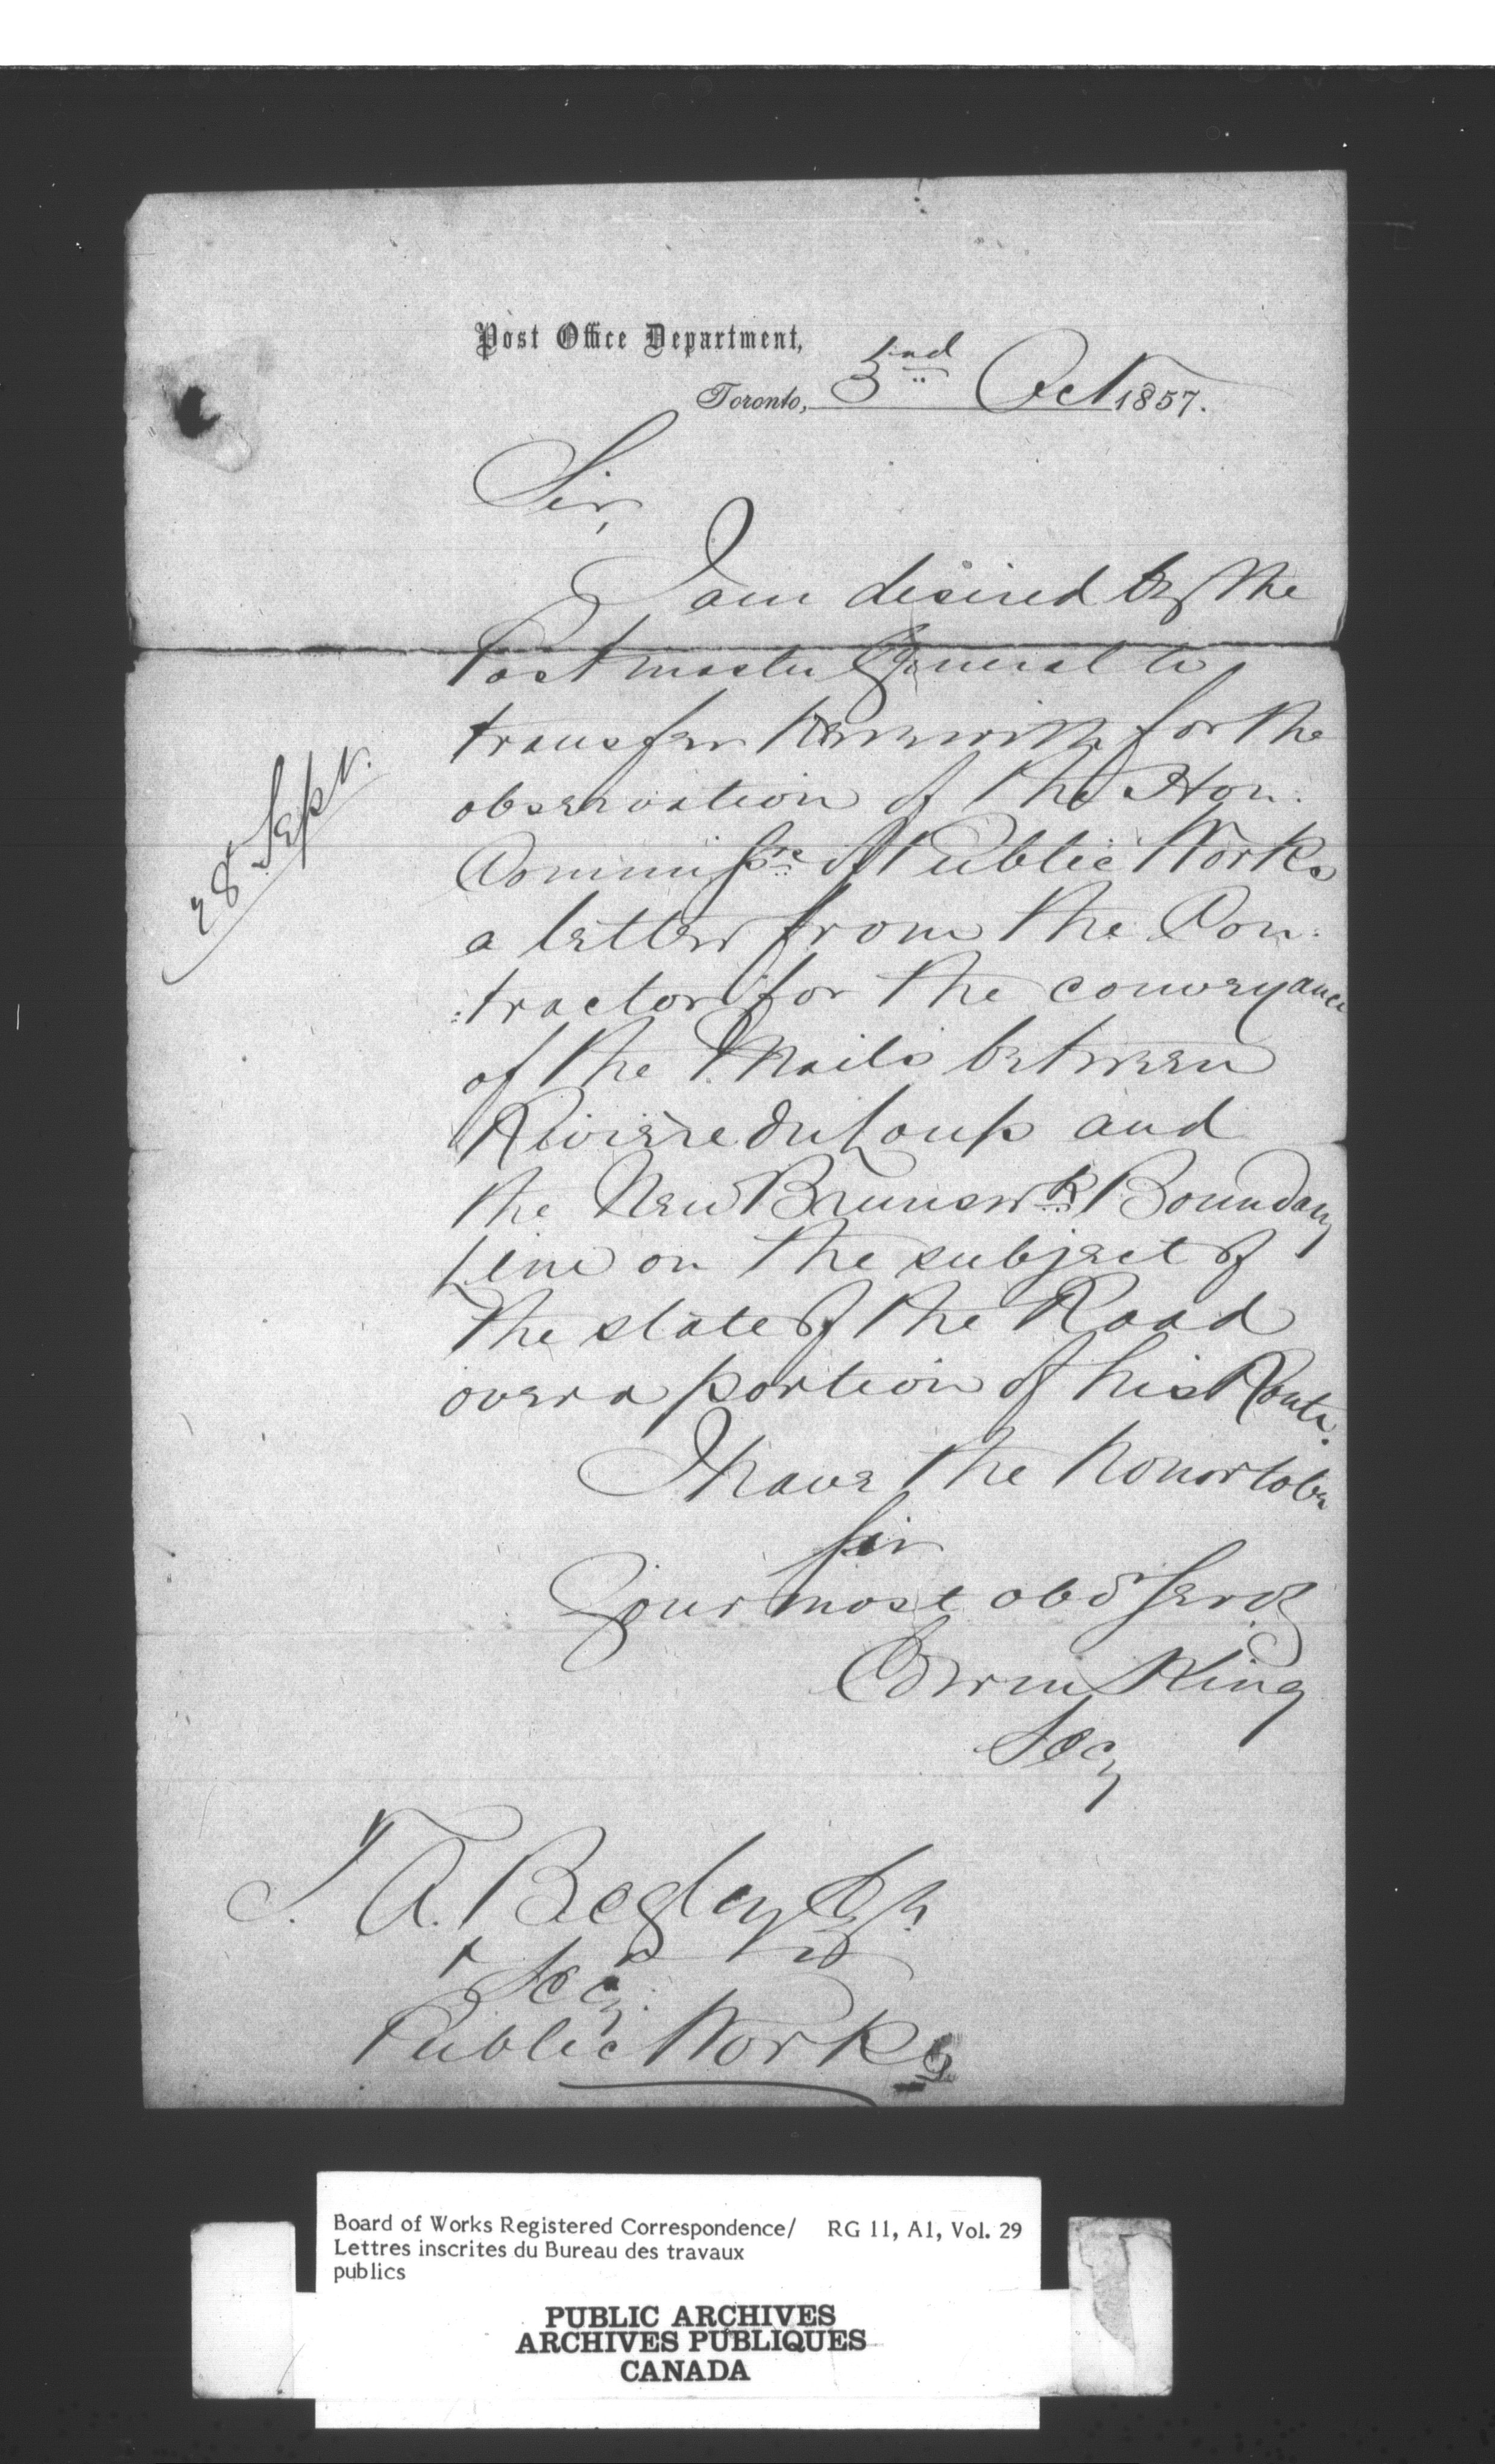 Post Office Department,
Toronto, 3nd Oct 1857.
Sir,
I am desired by the
Post master General to
transfer herewith for the
observation of the Hon:
Commissrs of Public Works
a letter from the Con:
:tractor for the conveyance
28 Sept.
of the Mails between
Rivière du Loup and
the New Brunswk Boundary
Line on the subject of
the state of the Road
over a portion of his Route.
I have the honor to be
Sir
Your most obdt Servt
Edwin King
Secy
T. A. Begley Esqr.
Secy.
Public Works
Board of Works Registered Correspondence/ RG 11, A1, Vol. 29
Lettres inscrites du Bureau des travaux
publics
PUBLIC ARCHIVES
ARCHIVES PUBLIQUES
CANADA